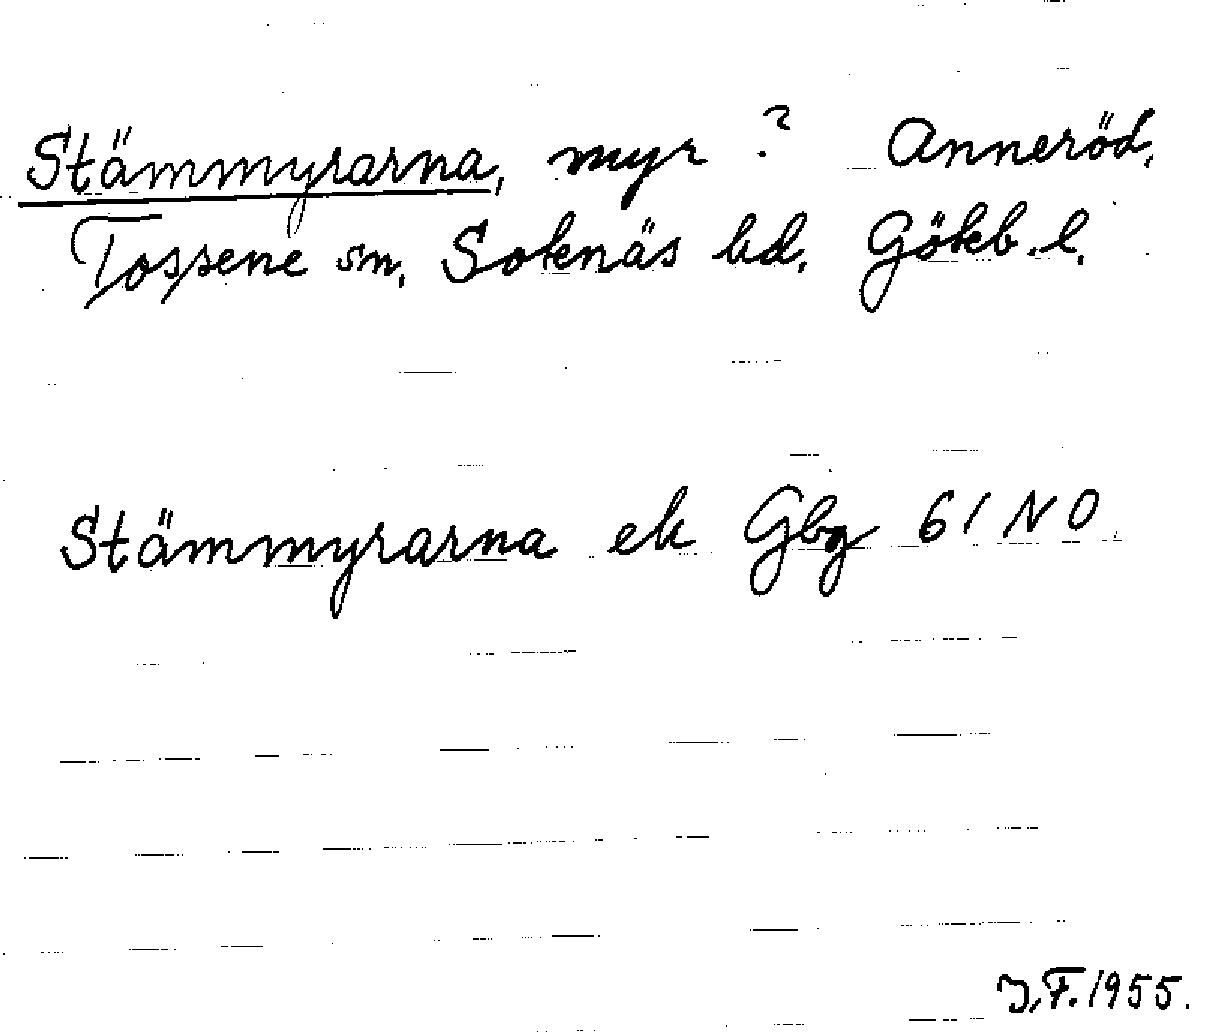 Stämmyrarna, myr? Anneröd.
Tossene sn. Sotenäs hd. Gökb. l.
Stämmyrarna ek Gbg 61 NO.
J.F. 1955.